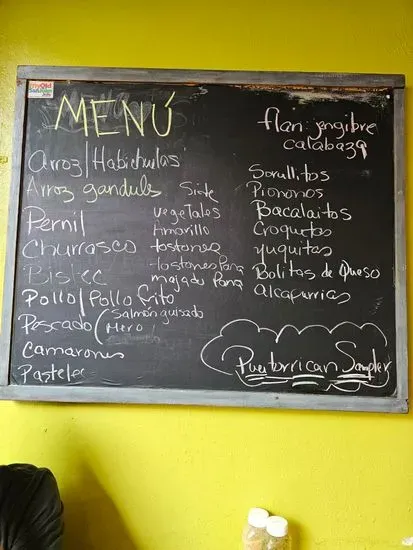 MENÚ
Arroz/Habichulas
Arroz gandules
Pernil
Churrasco
Bistec
Pollo/Pollo frito
Pescado (Salmon guisado
Mero
Camarones
Pasteles
Side
vegetales
Amarillo
tostones
tostones Pana
majado Pana
flan: jengibre
calabaza
Sorullitos
Piononos
Bacalaitos
Croquetas
Yuquitas
Bolitas de Queso
Alcapurrias
Puertorrican Sampler